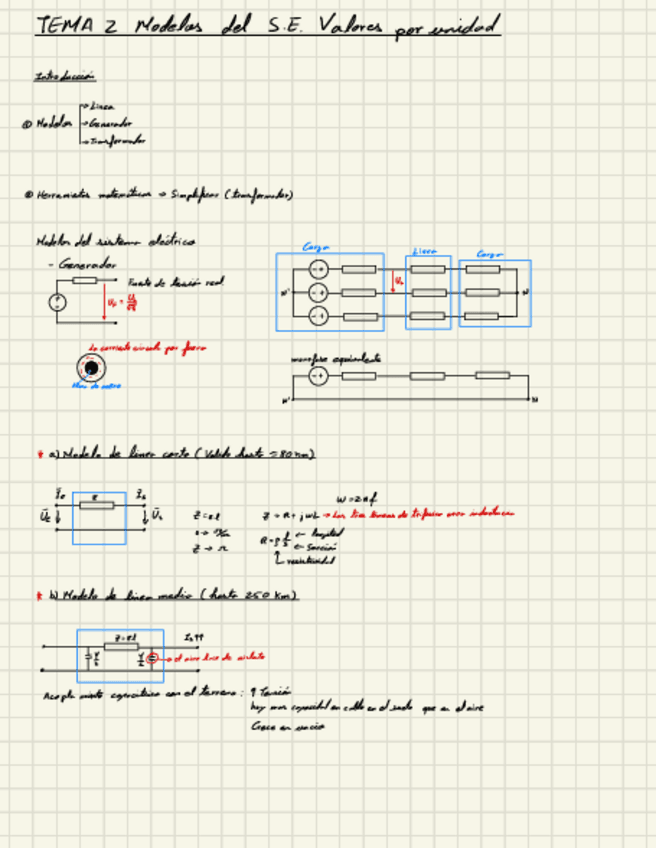 TEMA 2 Modelos del S.E. Valores por unidad
Introducción
① Modelos
→ Linea
→ Generador
→ Transformador
② Herramientas matemáticas → Simplificar (transformador)
Modelos del sistema eléctrico
- Generador
Fuente de tensión real
La corriente circula por fuera
Carga
Linea
Carga
N'
N
monofase equivalente
N'
N
* a) Modelo de linea corta (Valido hasta ≈ 80 km)
Z
W = 2πf
Z = R + jωL → Las tres lineas de trifasica crean inductancia
← longitud
← Sección
resistividad
* b) Modelo de linea media (hasta 250 km)
→ el aire hace de aislante
Acoplamiento capacitivo con el terreno: ↑ Tensión
hay mas capacidad en cable en el suelo que en el aire
Crece en vacio